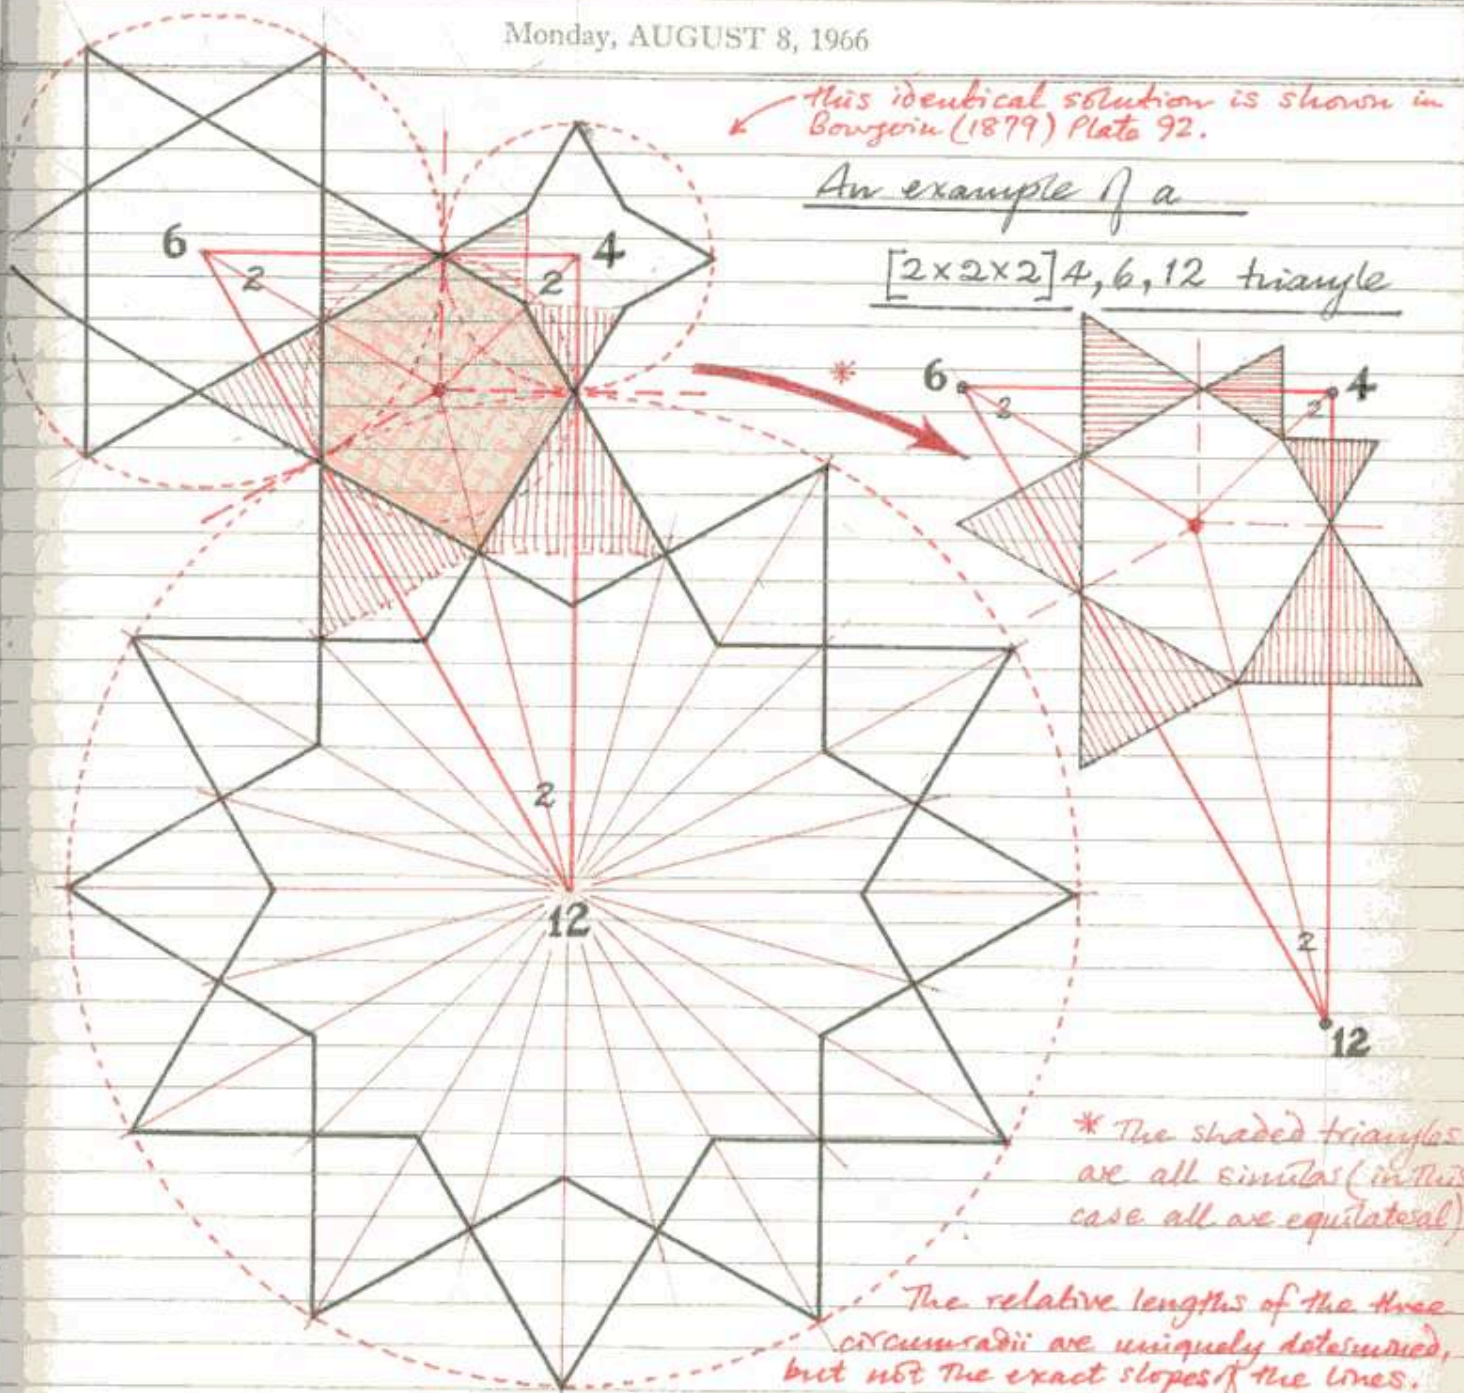 Monday, AUGUST 8, 1966
this identical solution is shown in
Bourgoin (1879) Plate 92.
An example of a
[2×2×2] 4, 6, 12 triangle
6
2
2
4
*
6
2
2
4
2
12
2
12
* The shaded triangles
are all similar (in this
case all are equilateral)
The relative lengths of the three
circumradii are uniquely determined,
but not the exact slopes of the lines.